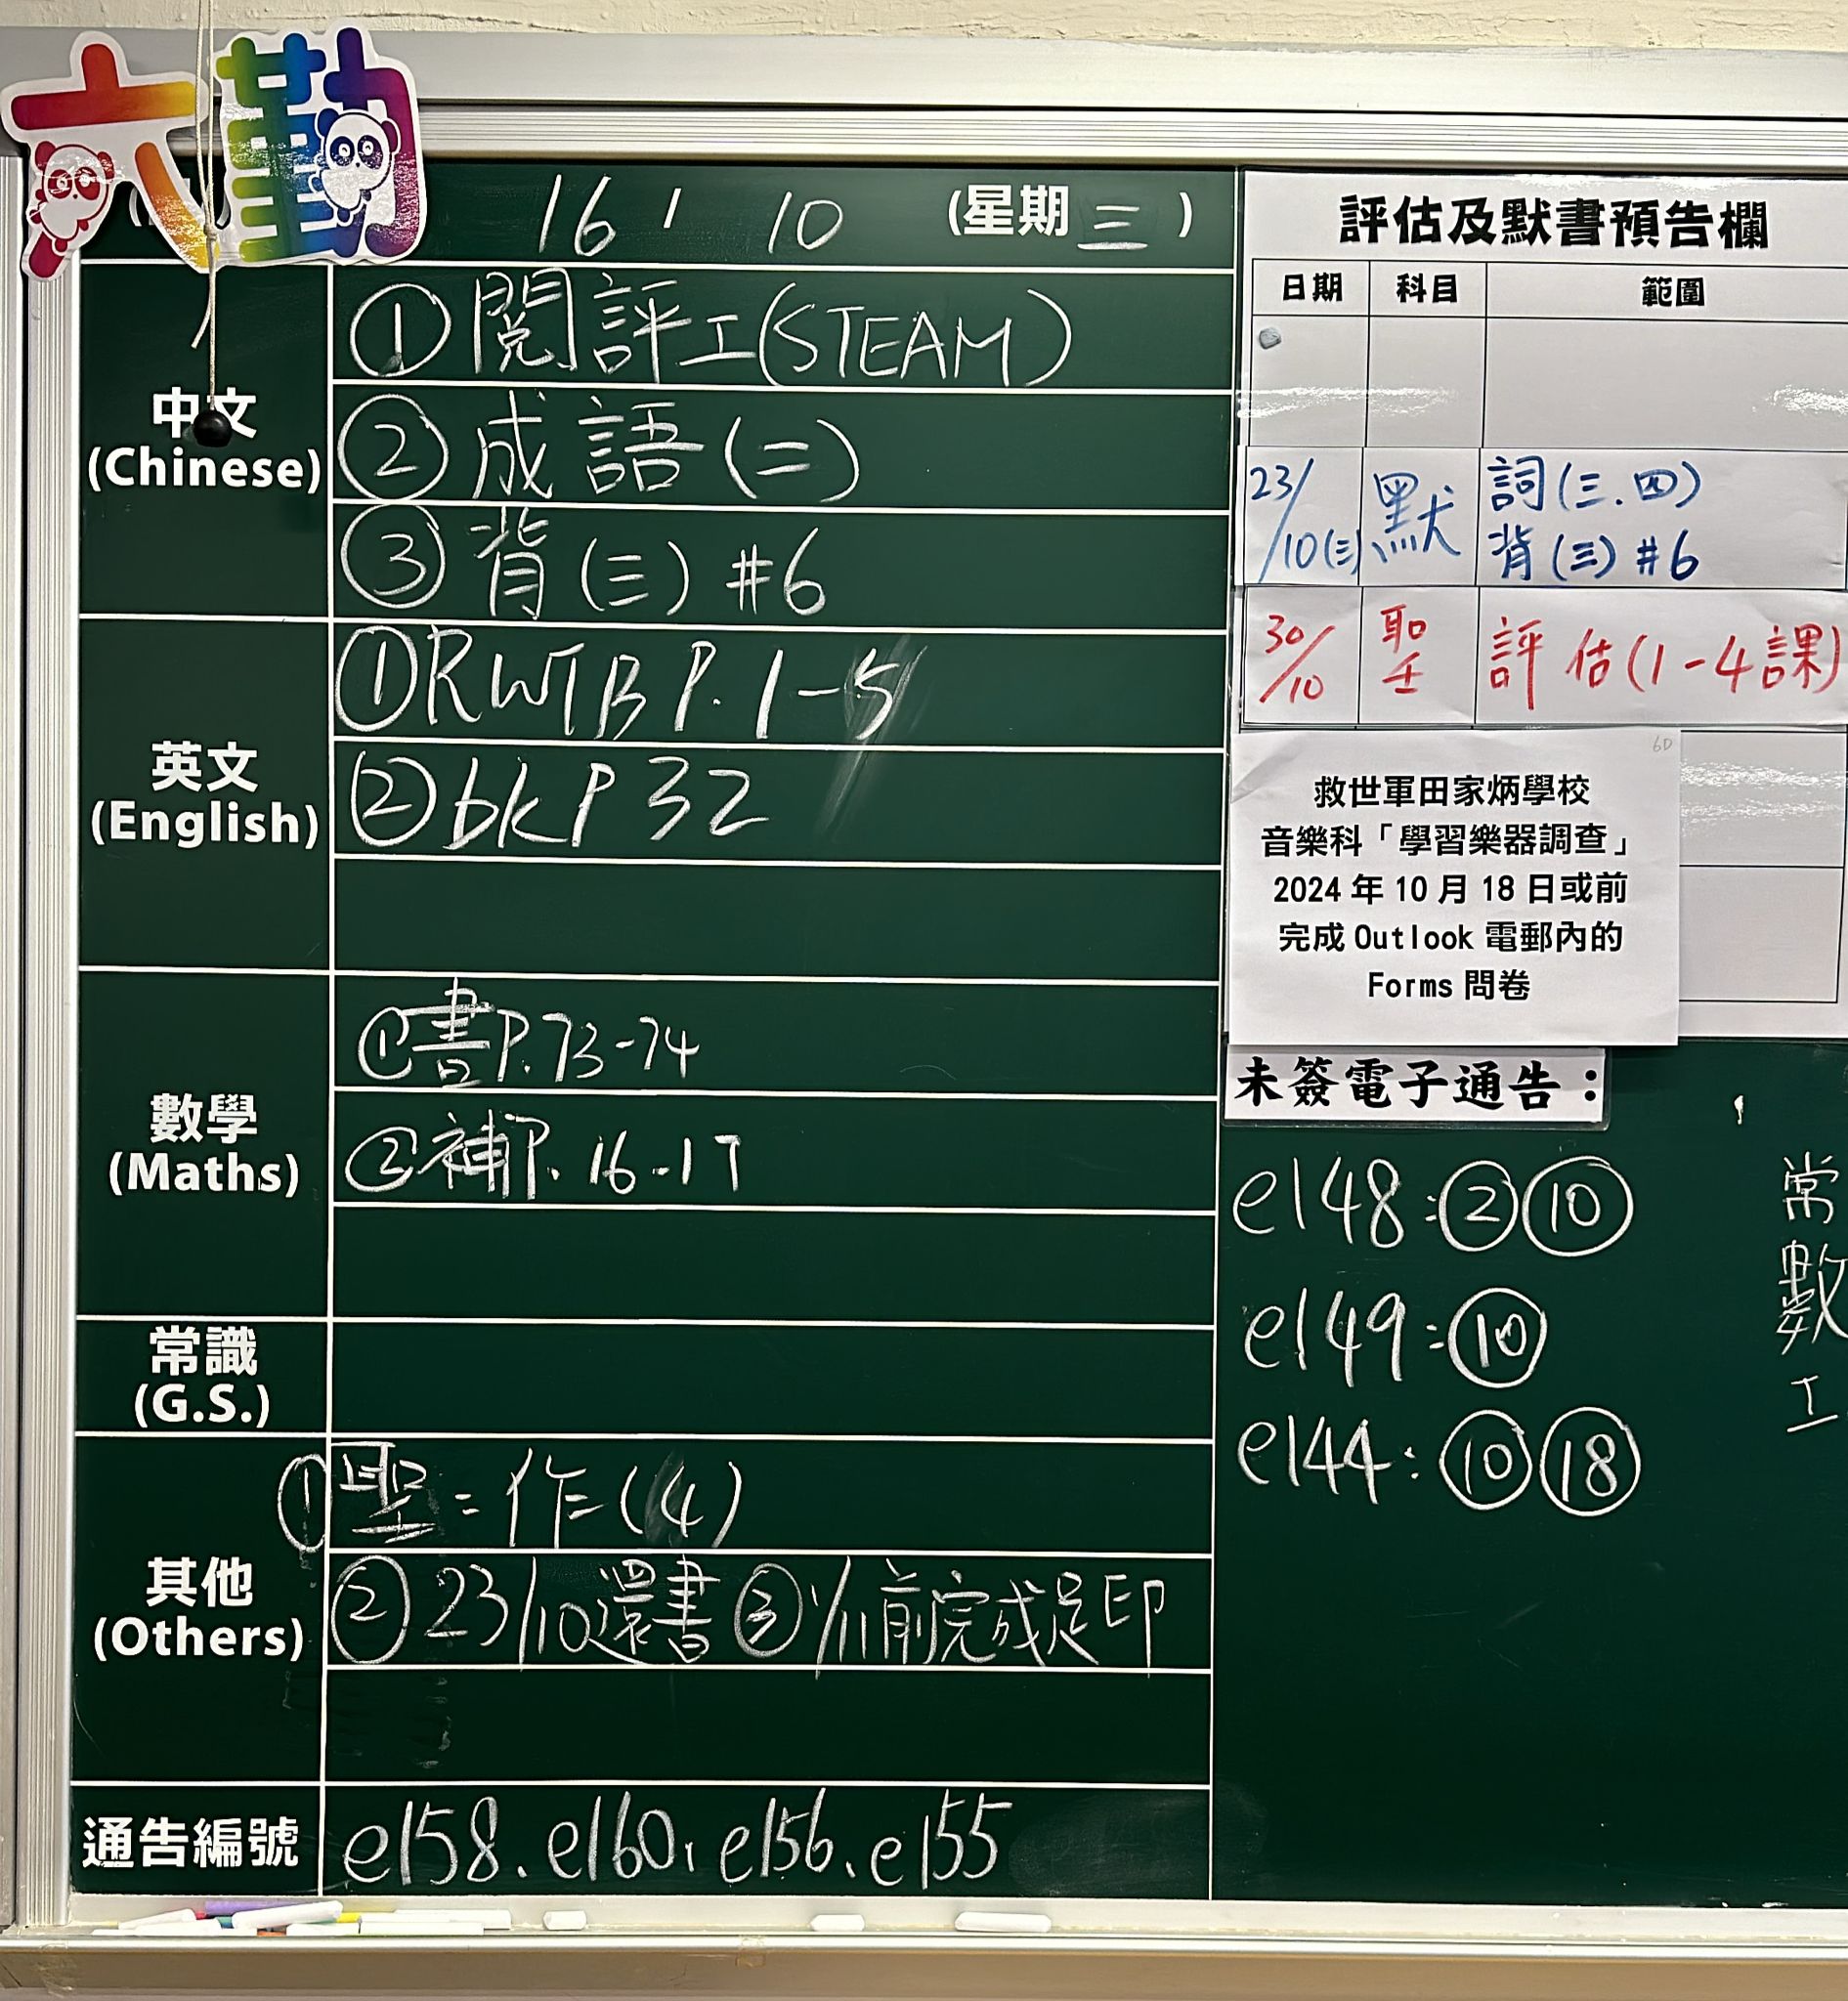 六勤
16 / 10 (星期三)
中文
(Chinese)
① 閱評工(STEAM)
② 成語(二)
③ 背(三) #6
英文
(English)
① RWTB P. 1-5
② bk P 32
數學
(Maths)
① 書P. 73-74
② 補P. 16-17
常識
(G.S.)
其他
(Others)
① 聖:作(4)
② 23/10還書 ③ 1/11前完成足印
通告編號
e158、e160、e156、e155
評估及默書預告欄
日期 科目 範圍
23/10(三) 默 詞(三.四)
背(三) #6
30/10 聖 評估(1-4課)
6D
救世軍田家炳學校
音樂科「學習樂器調查」
2024 年 10 月 18 日或前
完成 Outlook 電郵內的
Forms 問卷
未簽電子通告：
e148:②⑩
e149:⑩
e144:⑩⑱
常
數
工